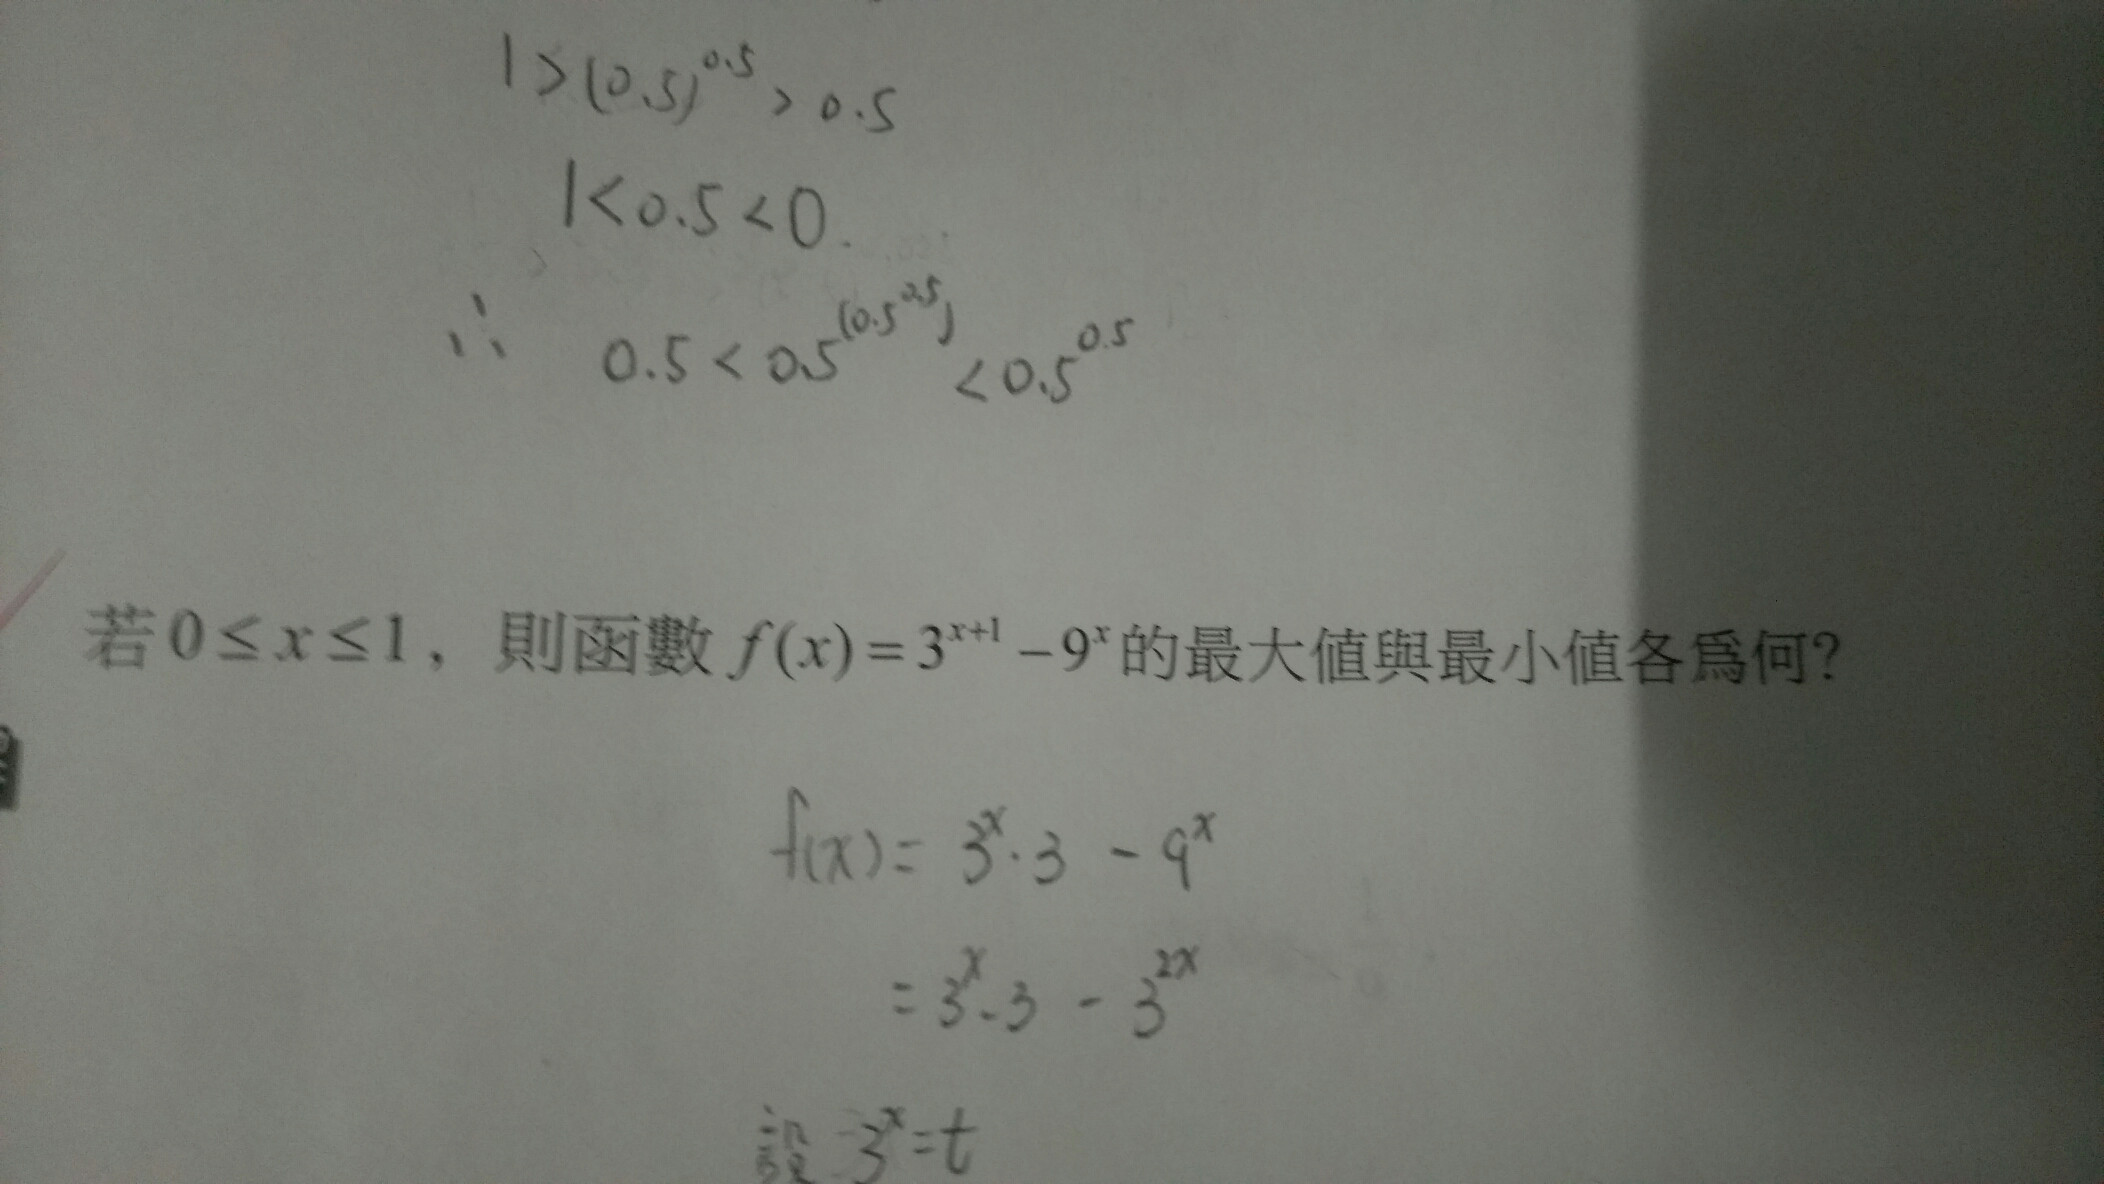 1 > (0.5)^0.5 > 0.5
1 < 0.5 < 0.
∴ 0.5 < 0.5^(0.5^0.5) < 0.5^0.5
若 0 ≤ x ≤ 1，則函數 f(x) = 3^{x+1} − 9^x 的最大值與最小值各爲何?
f(x) = 3^x · 3 − 9^x
= 3^x · 3 − 3^{2x}
設 3^x = t